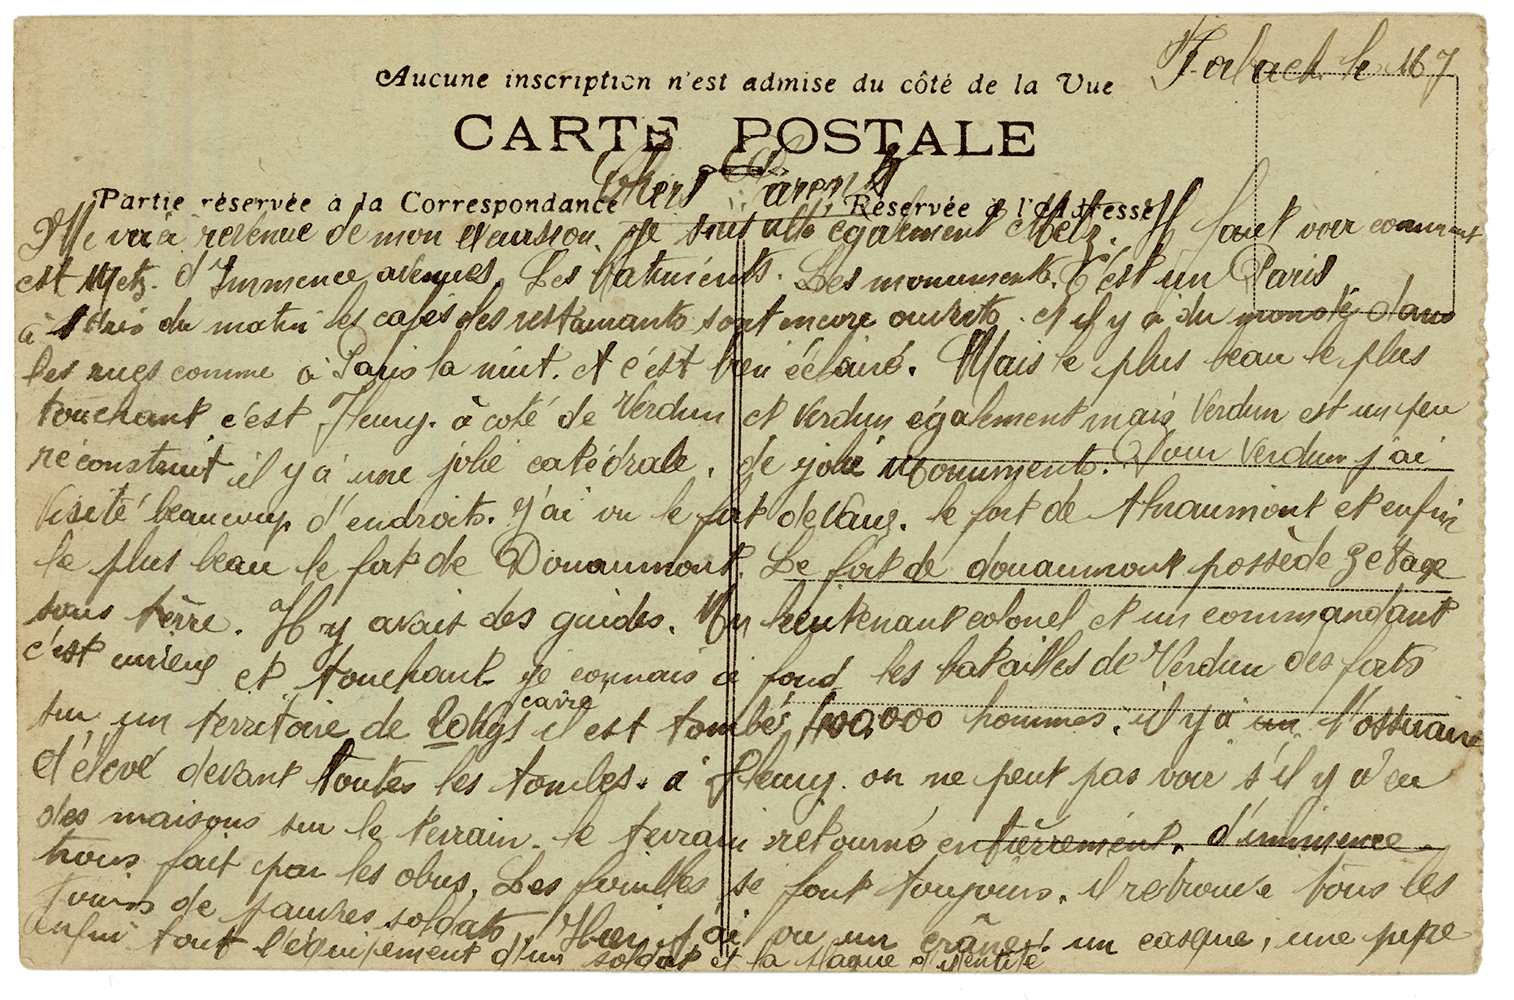 Forbach le 16 7
Aucune inscription n'est admise du côté de la Vue
CARTE POSTALE
Chers Parents
Partie réservée à la Correspondance
Réservée à l'adresse
Me voià revenue de mon excursion. je suis allé également Metz. Il faut voir comment
est Metz. d'Immence avenues. Les batiments. Les monuments. C'est un Paris
à du matin les cafés les restaurants sont encore ouverts. et il y à du monde dans
les rues comme à Paris la nuit. et c'est bien éclairé. Mais le plus beau le plus
touchant c'est Fleury. à coté de Verdun et Verdun également mais Verdun est un peu
réconstruit il y à une jolie catédrale. de jolie Monuments. Pour Verdun j'ai
Visité beaucoup d'endroits. J'ai vu le fort de Vaux. le fort de thiaumont et enfin
le plus beau le fort de Douaumont. Le fort de douaumont possède 3 etage
sous tèrre. Il y avait des guides. Un lieutenant colonel et un commandant
c'est curieux et touchant je connais à fond les batailles de Verdun des forts
sur un territoire de 20 kgs carré il est tombés 400.000 hommes. il y à un l'ossuaire
d'élevé devant toutes les tombes. à fleury. on ne peut pas voir s'il y à eu
des maisons sur le terrain. le terrain retourné entièrement. d'immence
trous fait par les obus. Les fouilles se font toujours. il retrouve tous les
jours de pauvres soldats. Hier j'ai vu un crâne. un casque, une pipe
enfin tout l'équipement d'un soldat et la plaque d'identité